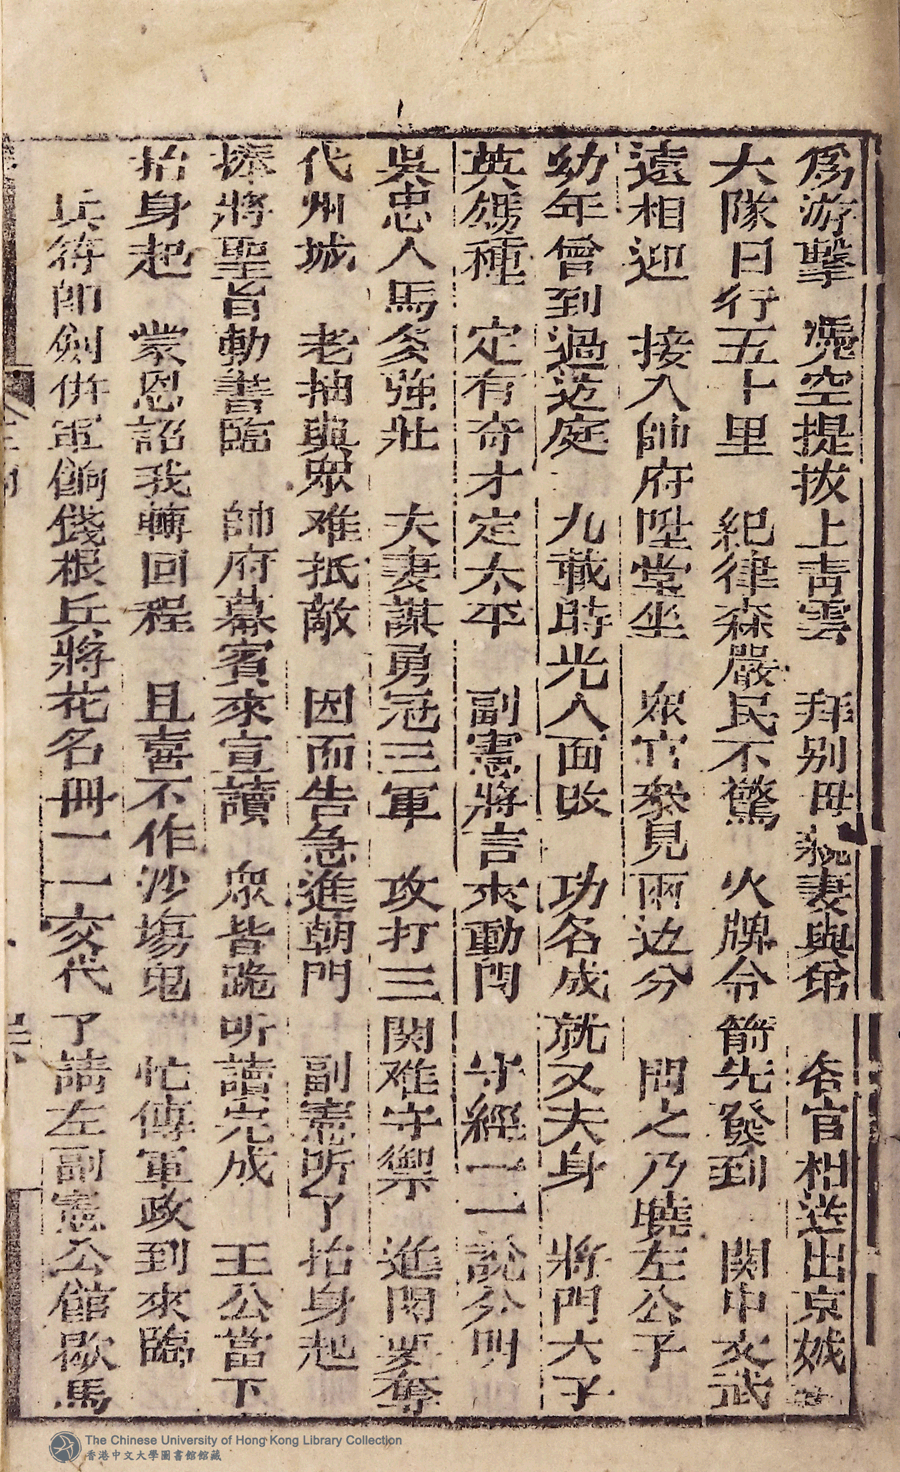 為游擊　凴空提拔上青雲　拜別母親妻與弟　各官相送出京城
大隊日行五十里　紀律森嚴民不驚　火牌令箭先發到　関中文武
遠相迎　接入帥府陞堂坐　衆官叅見兩边分　問之乃曉左公子
幼年曾到過边庭　九載時光人面改　功名成就又夫身　將門六子
英雄種　定有奇才定太平　副憲將言來動問　守經一一說分明
吳忠人馬多強壯　夫妻謀勇冠三軍　攻打三関难守禦　進関要奪
代州城　老抽與眾难抵敵　因而告急進朝門　副憲听了抬身起
捧將聖旨勅書臨　帥府幕賓來宣讀　衆皆跪听讀完成　王公當下
抬身起　蒙恩詔我轉回程　且喜不作沙塲鬼　忙傳軍政到來臨
兵符印劍併軍餉錢根兵將花名冊一一交代了請左副憲公館歇馬
The Chinese University of Hong Kong Library Collection
香港中文大學圖書館館藏